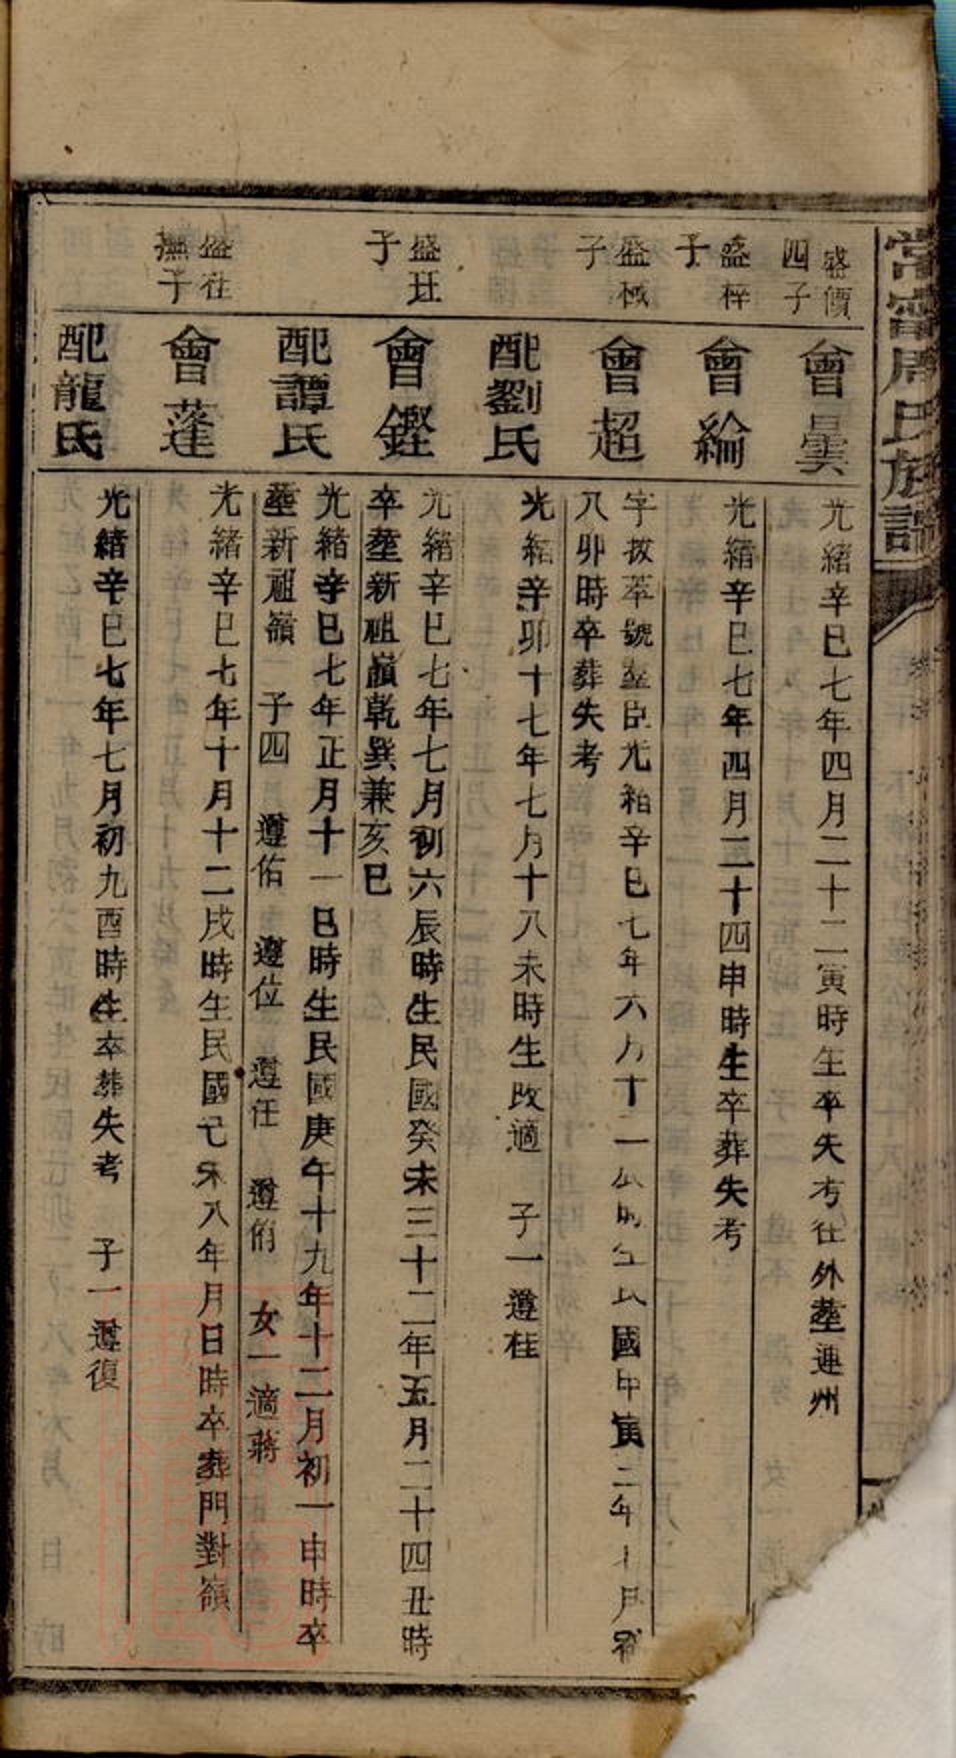 常甯周氏族譜
盛價
四子
會曇
光緒辛巳七年四月二十二寅時生卒失考在外塟連州
盛梓
子
會綸
光緒辛巳七年四月二十四申時生卒葬失考
盛棫
子
會超
字拔萃號塾臣光緒辛巳七年六月十二辰時生民國甲寅三年十月初
八卯時卒葬失考
配劉氏
光緒辛卯十七年七月十八未時生改適 子一遵桂
盛玨
子
會鏗
光緒辛巳七年七月初六辰時生民國癸未三十二年五月二十四丑時
卒塟新祖嶺乾巽兼亥巳
配譚氏
光緒辛巳七年正月十一巳時生民國庚午十九年十二月初一申時卒
塟新祖嶺 子四 遵佑 遵位 遵任 遵俏 女一適蔣
盛在
撫子
會蓬
光緒辛巳七年十月十二戌時生民國己未八年月日時卒葬門對嶺
配龍氏
光緒辛巳七年七月初九酉時生卒葬失考 子一遵復